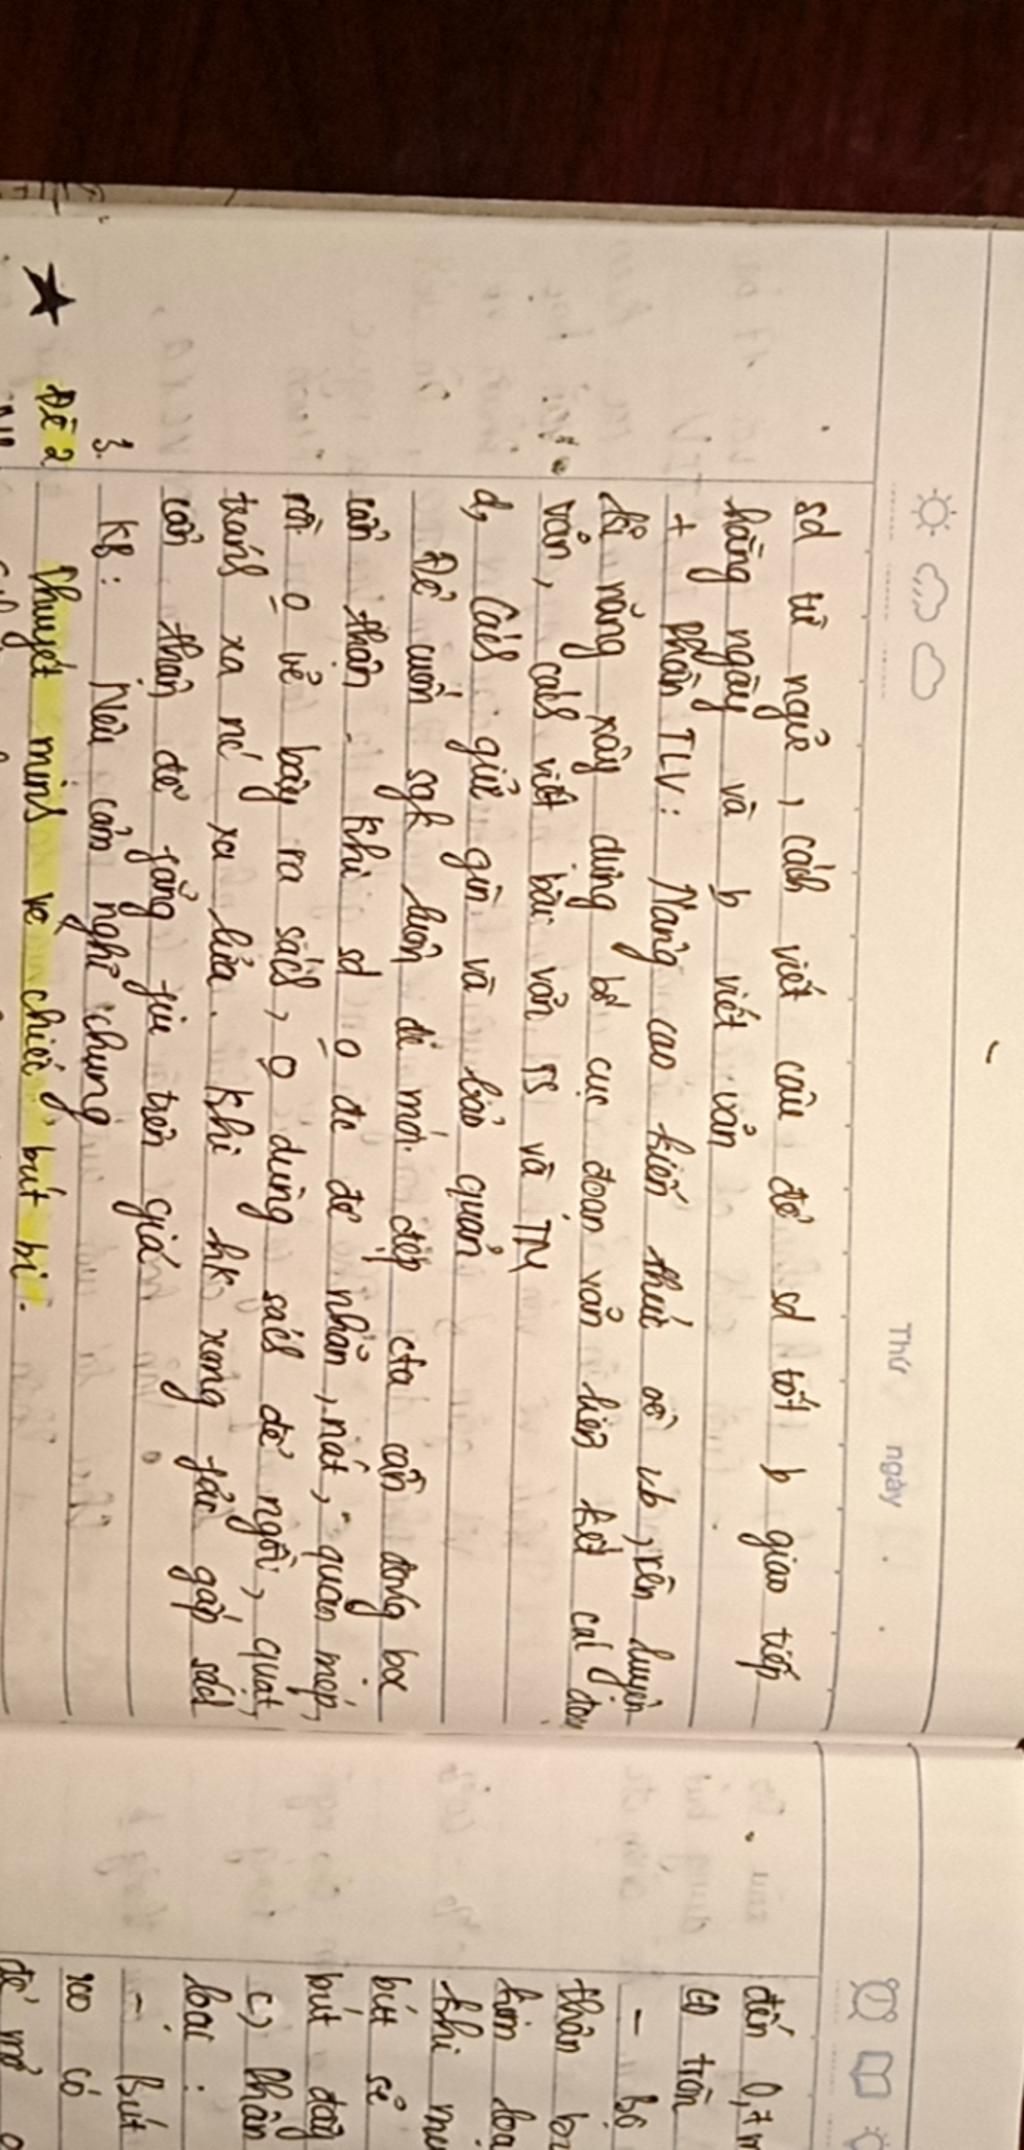 Thứ ngày
sd từ ngữ, cách viết câu để sd tốt b giao tiếp
hằng ngày và b viết văn
+ Phần TLV: Nâng cao kiến thức về vb, rèn luyện
kĩ năng xây dựng bố cục đoạn văn liên kết các đoạn
văn, cách viết bài văn TS và TM
d, Cách giữ gìn và bảo quản
Để cuốn sgk luôn đc mới đẹp cta cần đóng bọc
cẩn thận. Khi sd o đc để nhăn, nát, quăn mép,
rồi o vẽ bậy ra sách, o dùng sách để ngồi, quạt,
tránh xa nc xa lửa. Khi hk xong fải gấp sách
cẩn thận để gọn trên giá
3. KB: Nêu cảm nghĩ chung
Đề 2 Thuyết minh về chiếc bút bi.
đến 0,7m
có tròn
- Bộ
thân bú
kim loạ
khi mu
bút sẽ
bút đẩy
c, Phân
loại:
- Bút
100 có
để mở